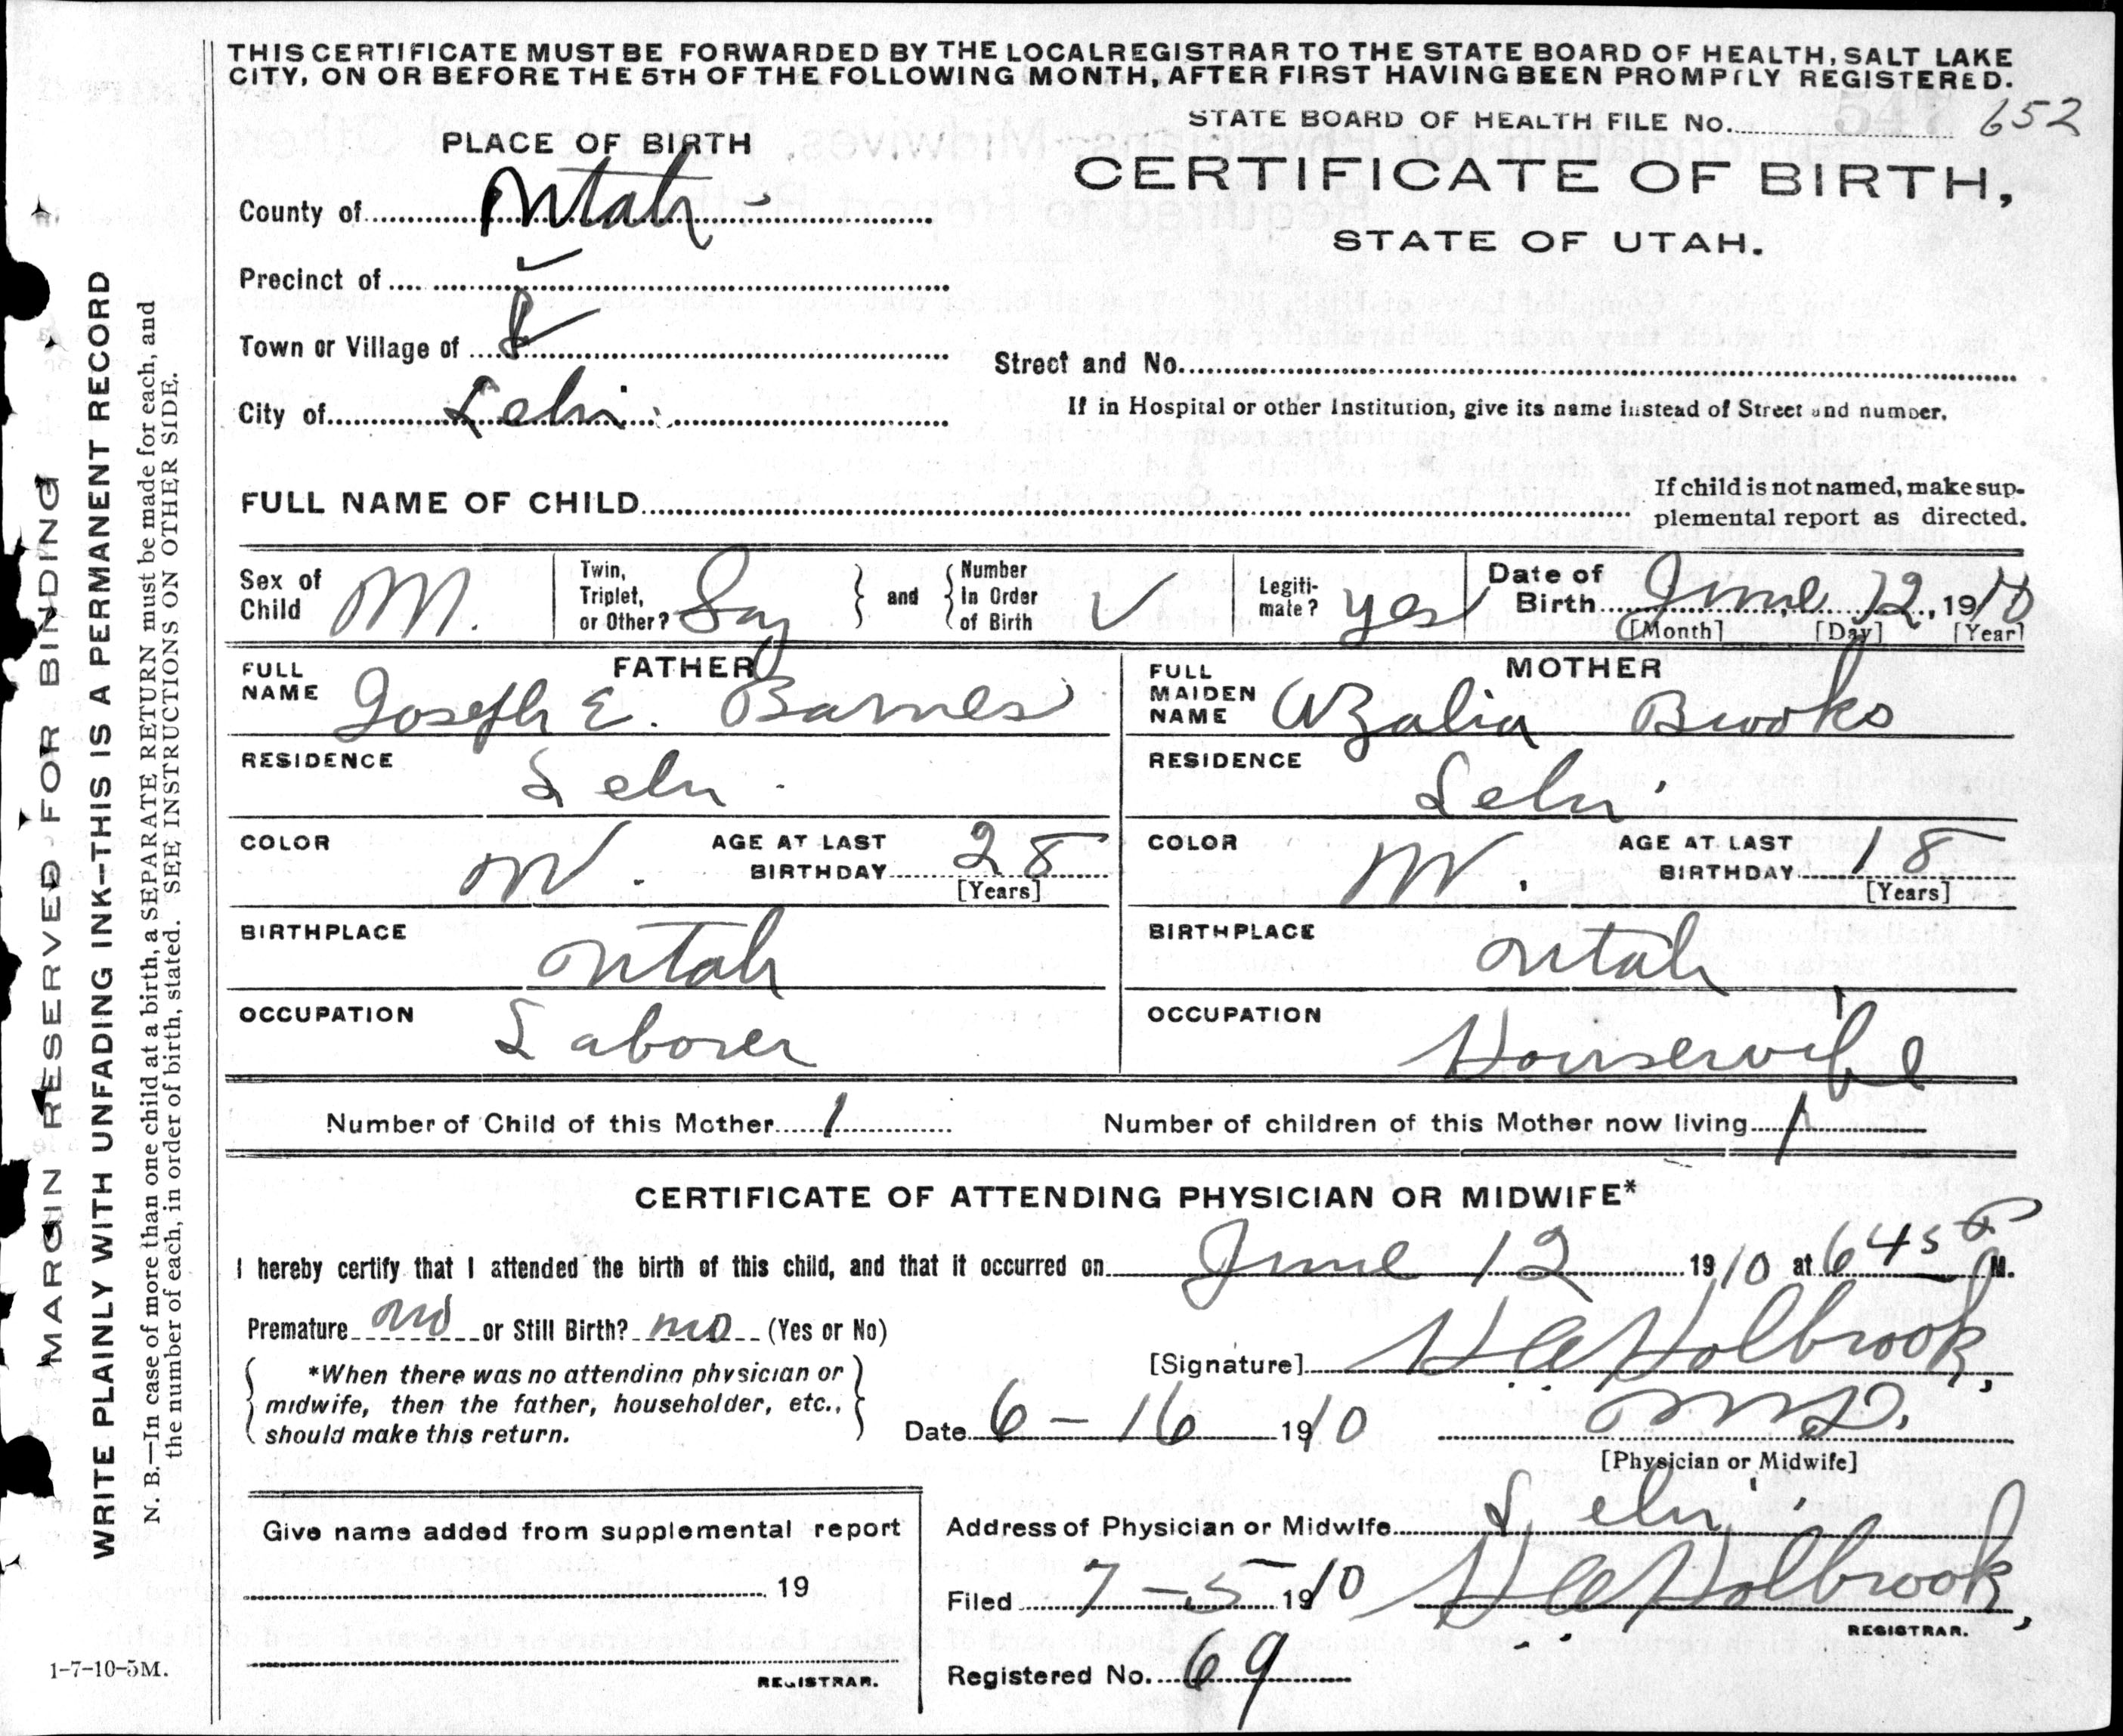 THIS CERTIFICATE MUST BE FORWARDED BY THE LOCAL REGISTRAR TO THE STATE BOARD OF HEALTH, SALT LAKE
CITY, ON OR BEFORE THE 5TH OF THE FOLLOWING MONTH, AFTER FIRST HAVING BEEN PROMPTLY REGISTERED.
STATE BOARD OF HEALTH FILE No. 547 652
PLACE OF BIRTH
CERTIFICATE OF BIRTH,
STATE OF UTAH.
County of Utah
Precinct of
Town or Village of
Street and No.
City of Lehi
If in Hospital or other Institution, give its name instead of Street and number.
FULL NAME OF CHILD
If child is not named, make sup-
plemental report as directed.
Sex of Child M.
Twin, Triplet, or Other?
and
Number In Order of Birth ✓
Legiti-mate? yes
Date of Birth June 12, 1910
[Month] [Day] [Year]
FATHER
FULL NAME Joseph E. Barnes
RESIDENCE Lehi
COLOR W. AGE AT LAST BIRTHDAY 28
[Years]
BIRTHPLACE Utah
OCCUPATION Laborer
MOTHER
FULL MAIDEN NAME Azalia Brooks
RESIDENCE Lehi
COLOR W. AGE AT LAST BIRTHDAY 18
[Years]
BIRTHPLACE Utah
OCCUPATION Housewife
Number of Child of this Mother 1 Number of children of this Mother now living 1
CERTIFICATE OF ATTENDING PHYSICIAN OR MIDWIFE*
I hereby certify that I attended the birth of this child, and that it occurred on June 12 1910 at 645 P M.
Premature no or Still Birth? no (Yes or No)
[Signature] H A Holbrook,
*When there was no attending physician or
midwife, then the father, householder, etc.,
should make this return.
Date 6-16 1910 M.D.
[Physician or Midwife]
Address of Physician or Midwife Lehi
Filed 7-5 1910 H A Holbrook,
REGISTRAR.
Registered No. 69
Give name added from supplemental report
19
REGISTRAR.
1-7-10-5M.
MARGIN RESERVED FOR BINDING
WRITE PLAINLY WITH UNFADING INK—THIS IS A PERMANENT RECORD
N. B.—In case of more than one child at a birth, a SEPARATE RETURN must be made for each, and
the number of each, in order of birth, stated. SEE INSTRUCTIONS ON OTHER SIDE.